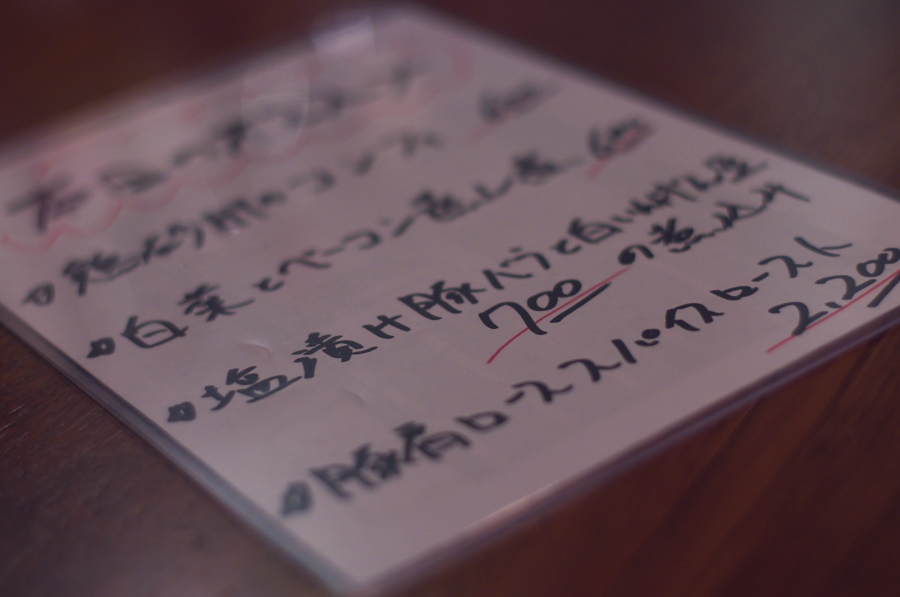 鶏砂肝のコンフィ
白菜とベーコン蒸し煮 600
塩漬け豚バラと白いんげん豆
の煮込み
700
豚肩ローススパイスロースト
2,200